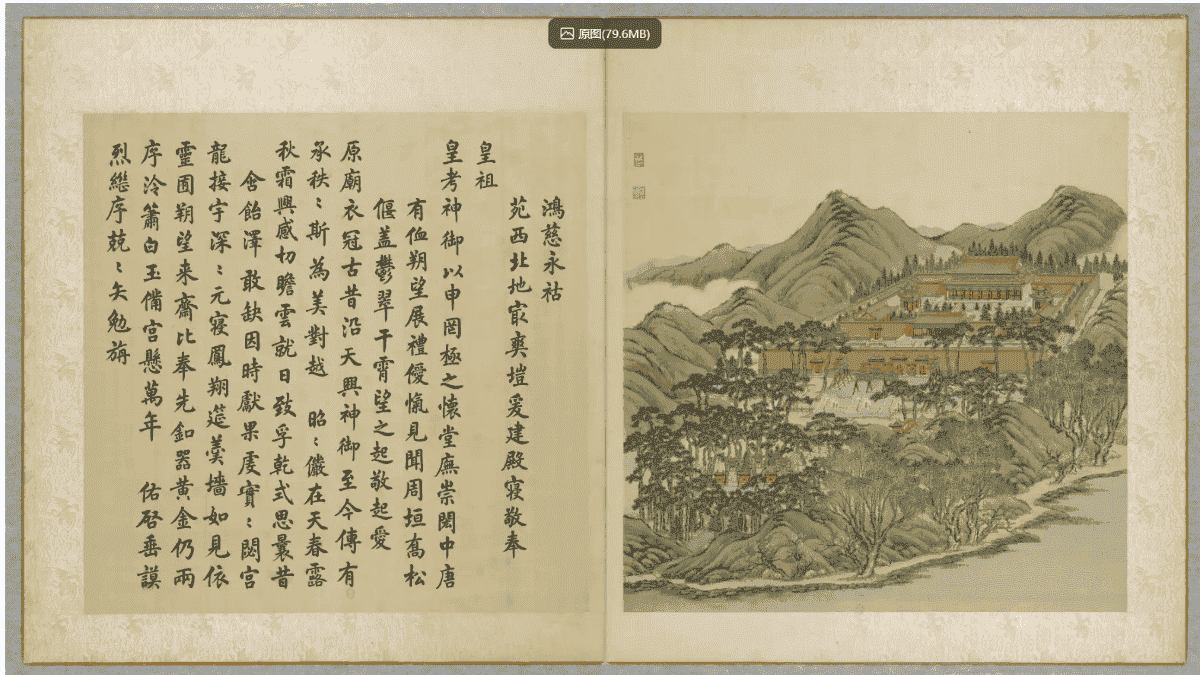 原图(79.6MB)
鴻慈永祜
苑西北地㝡爽塏爰建殿寢敬奉
皇祖
皇考神御以申罔極之懷堂廡崇閎中唐
有侐朔望展禮僾愾見聞周垣喬松
偃蓋鬱翠干霄望之起敬起愛
原廟衣冠古昔沿天興神御至今傳有
承秩〻斯為美對越 昭〻儼在天春露
秋霜興感切瞻雲就日致孚乾式思曩昔
含飴澤敢缺因時獻果虔實〻閟宮
龍接宇深〻元寢鳳翔筵羹墻如見依
靈囿朔望来齋比奉先釦器黃金仍兩
序泠簫白玉備宮懸萬年 佑啓垂謨
烈繼序兢〻矢勉旃